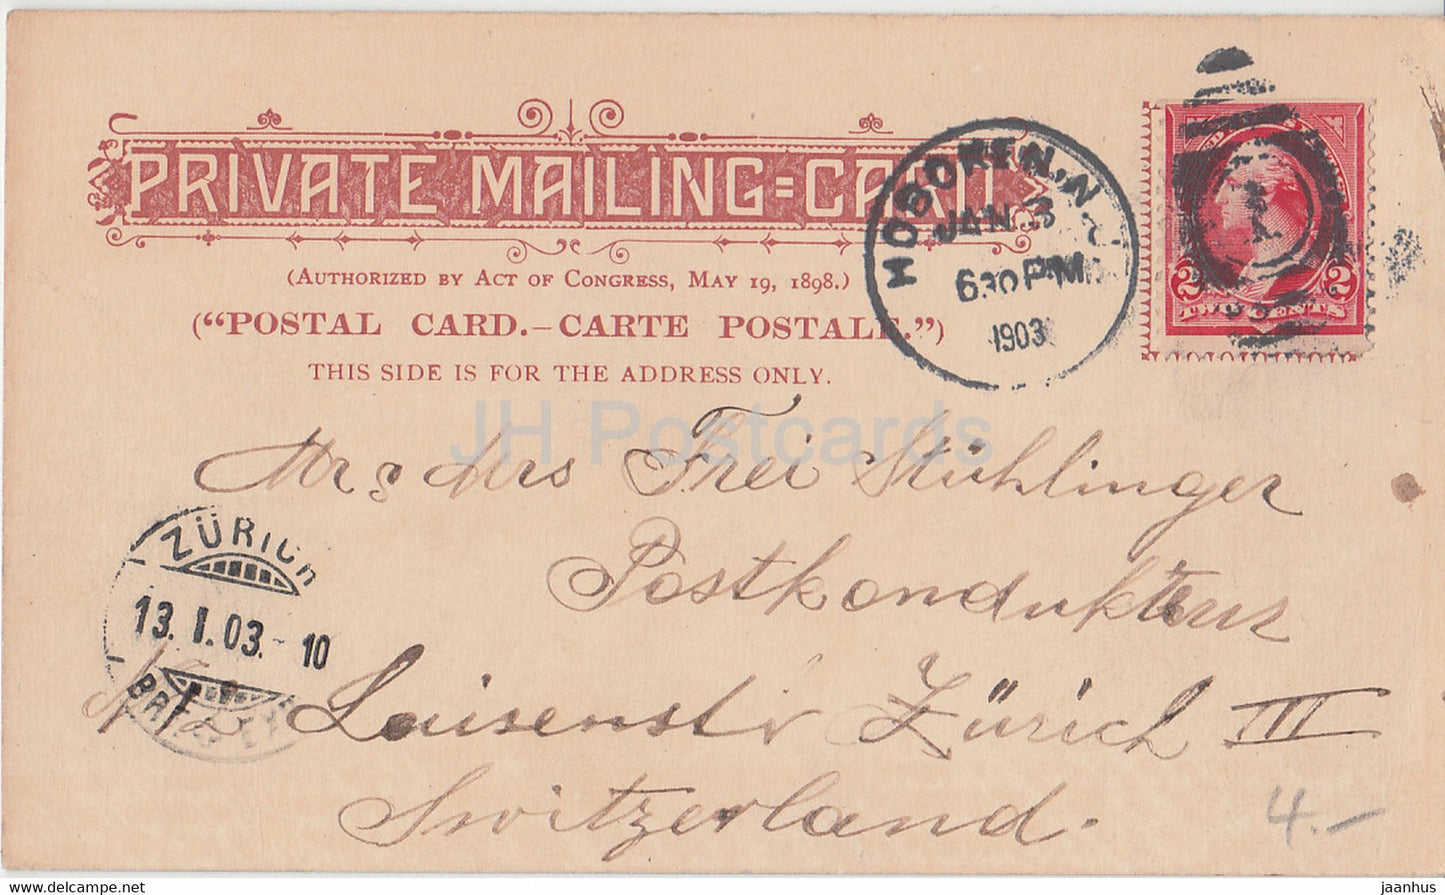 PRIVATE MAILING=CARD
(AUTHORIZED BY ACT OF CONGRESS, MAY 19, 1898.)
("POSTAL CARD.—CARTE POSTALE.")
THIS SIDE IS FOR THE ADDRESS ONLY.
HOBOKEN, N
JAN 3
630 PM
1903
2 2
TWO CENTS
JH Postcards
Mr & Mrs Frei Stühlinger
Postkondukteur
Luisenstr Zürich III
Switzerland.
ZÜRICH
13. I. 03. - 10
4.-
jaanhus